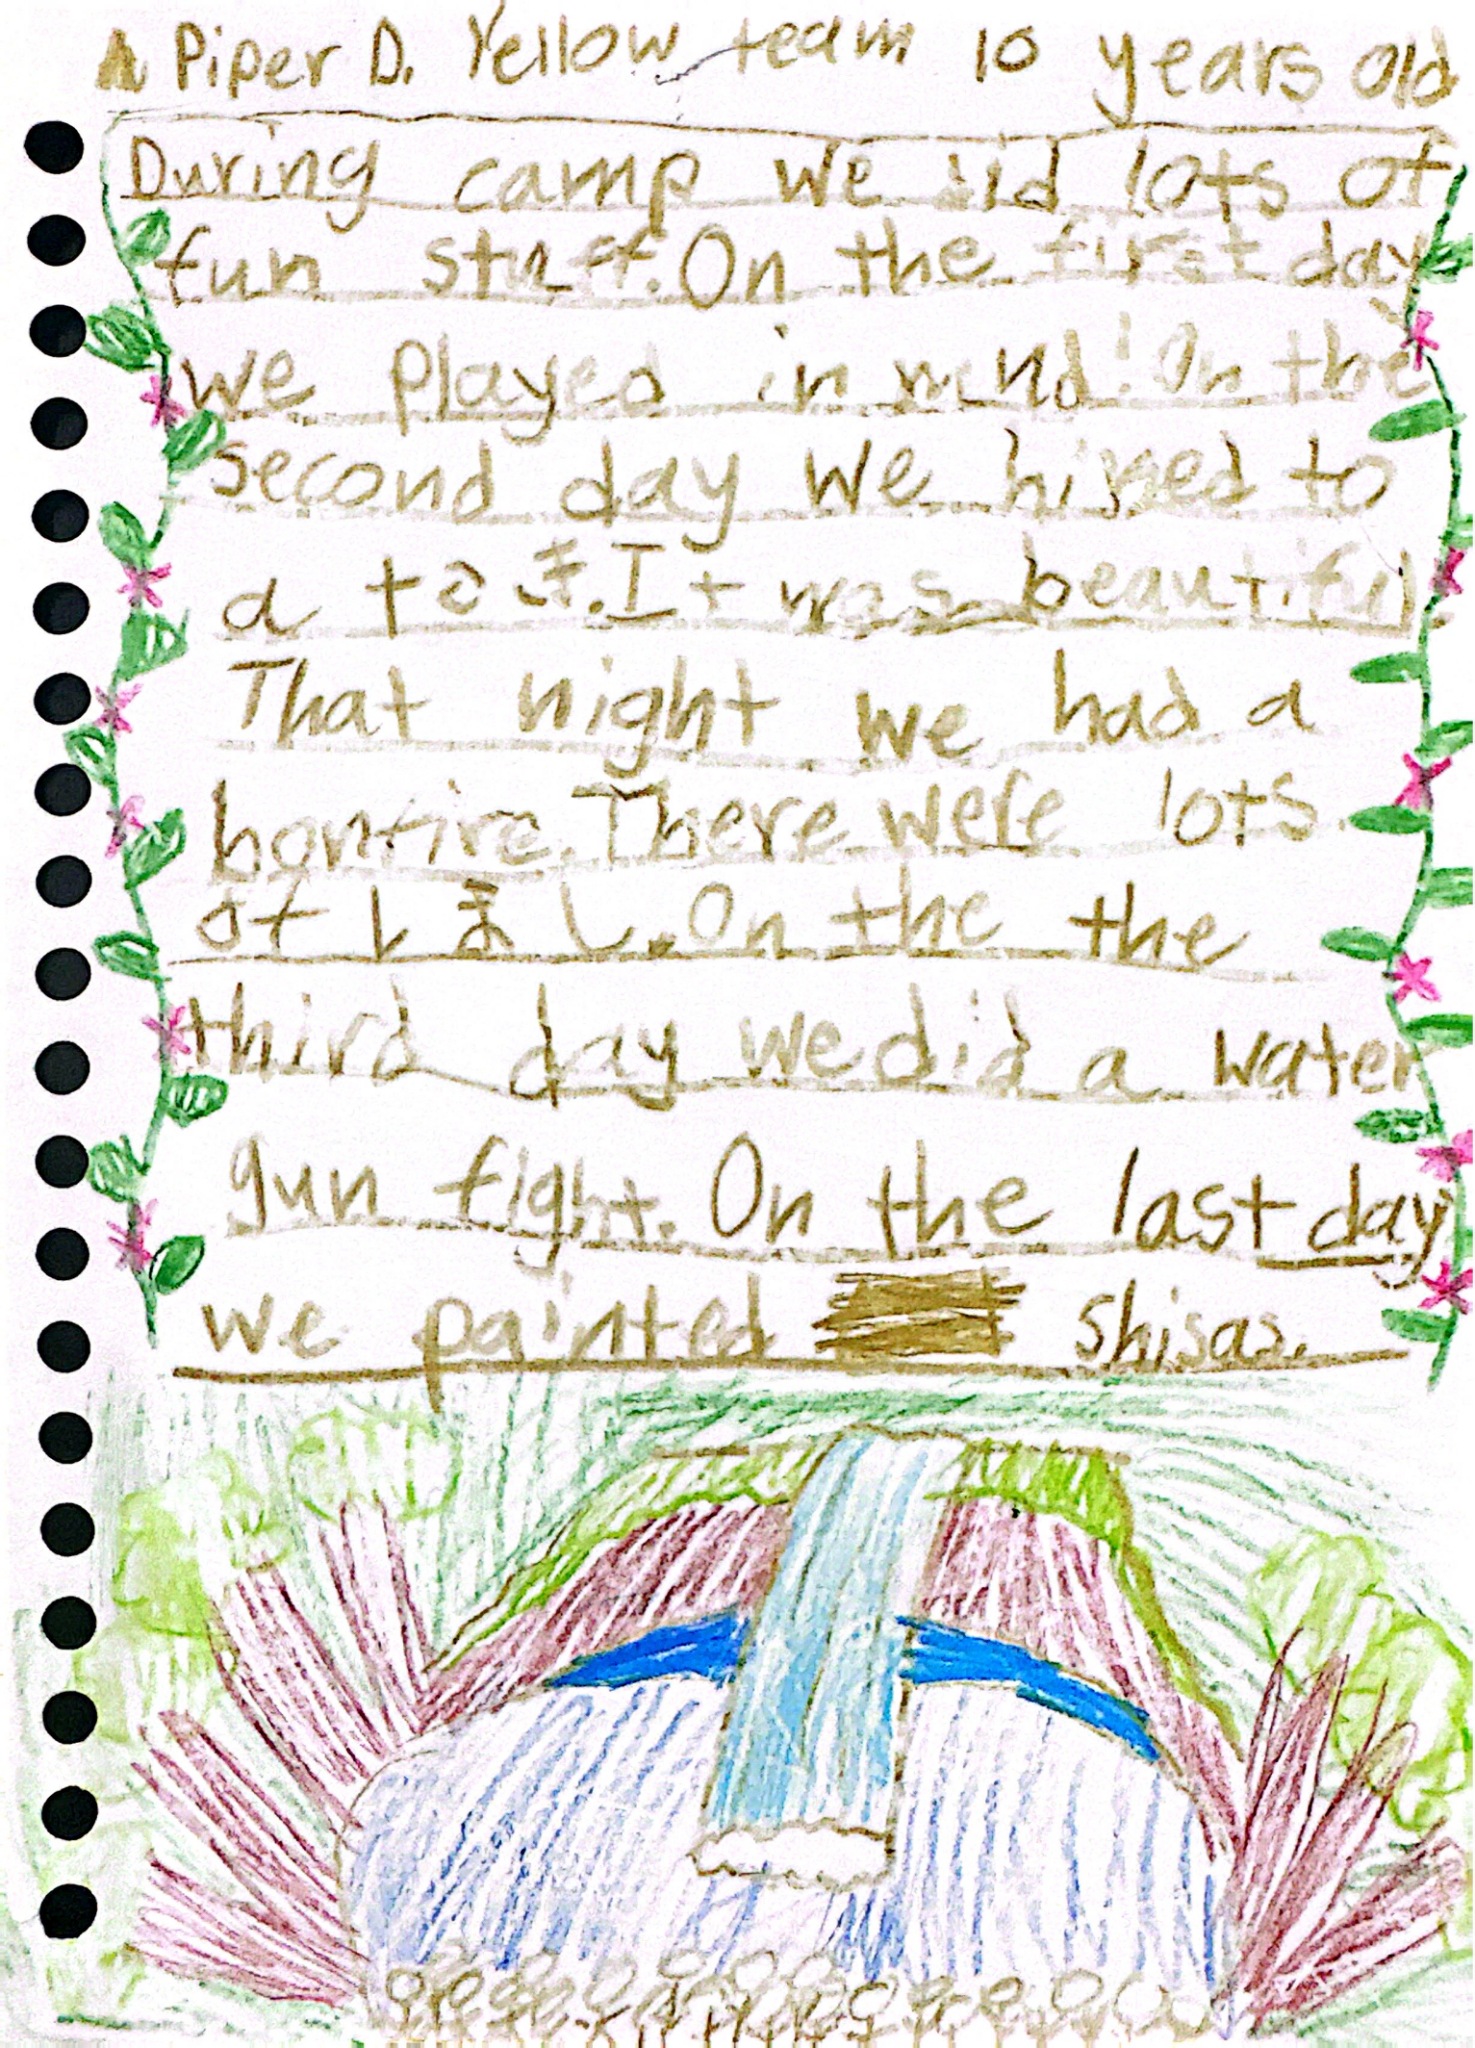 Piper D. Yellow team 10 years old
During camp we did lots of
fun stuff. On the first day
we played in On the
second day we hiked to
a たき. It was beautiful.
That night we had a
bonfire. There were lots
of ほし. On the the
third day we did a water
gun fight. On the last day
we painted shisas.